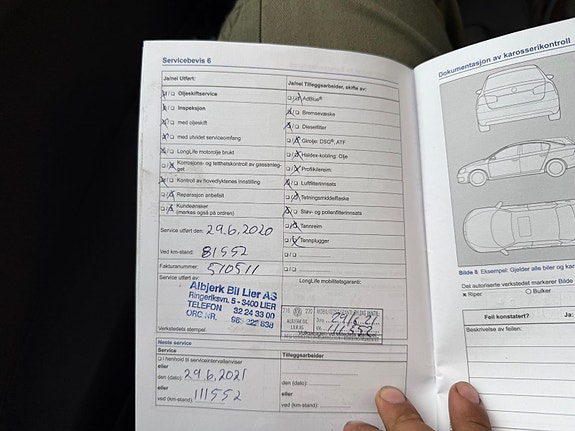 Servicebevis 6
Ja/nei Utført:
Ja/nei Tilleggsarbeider, skifte av:
Oljeskiftservice
AdBlue®
Inspeksjon
Bremsevæske
med oljeskift
Dieselfilter
med utvidet serviceomfang
Girolje: DSG®, ATF
LongLife motorolje brukt
Haldex-kobling: Olje
Korrosjons- og tetthetskontroll av gassanleg-
get
Profilklensin:
Kontroll av hovedlyktenes innstilling
Luftfilterinnsats
Reparasjon anbefalt
Tetningsmiddelflaske
Kundeønsker
(merkes også på ordren)
Støv- og pollenfilterinnsats
Service utført den: 29.6,2020
Tannreim
Ved km-stand: 81552
Tannplugger
Fakturanummer: 510511
Service utført av:
LongLife mobilitetsgaranti:
Albjerk Bil Lier AS
Ringeriksvn. 5 - 3400 LIER
TELEFON 32 24 33 00
ORG NR.
ALBJERK BIL
LIER AS
29/6.21
111.552
Verkstedets stempel
Neste service
Service
Tilleggsarbeider:
I henhold til serviceintervallanviser
eller
den (dato): 29.6,2021
den (dato):
eller
eller
ved (km-stand): 111552
ved (km-stand):
Dokumentasjon av karosserikontroll
Bilde 8 Eksempel: Gjelder alle biler og kar
Det autoriserte verkstedet markerer Bilde
Riper
Bulker
Feil konstatert?
Ja, h
Beskrivelse av feilen: